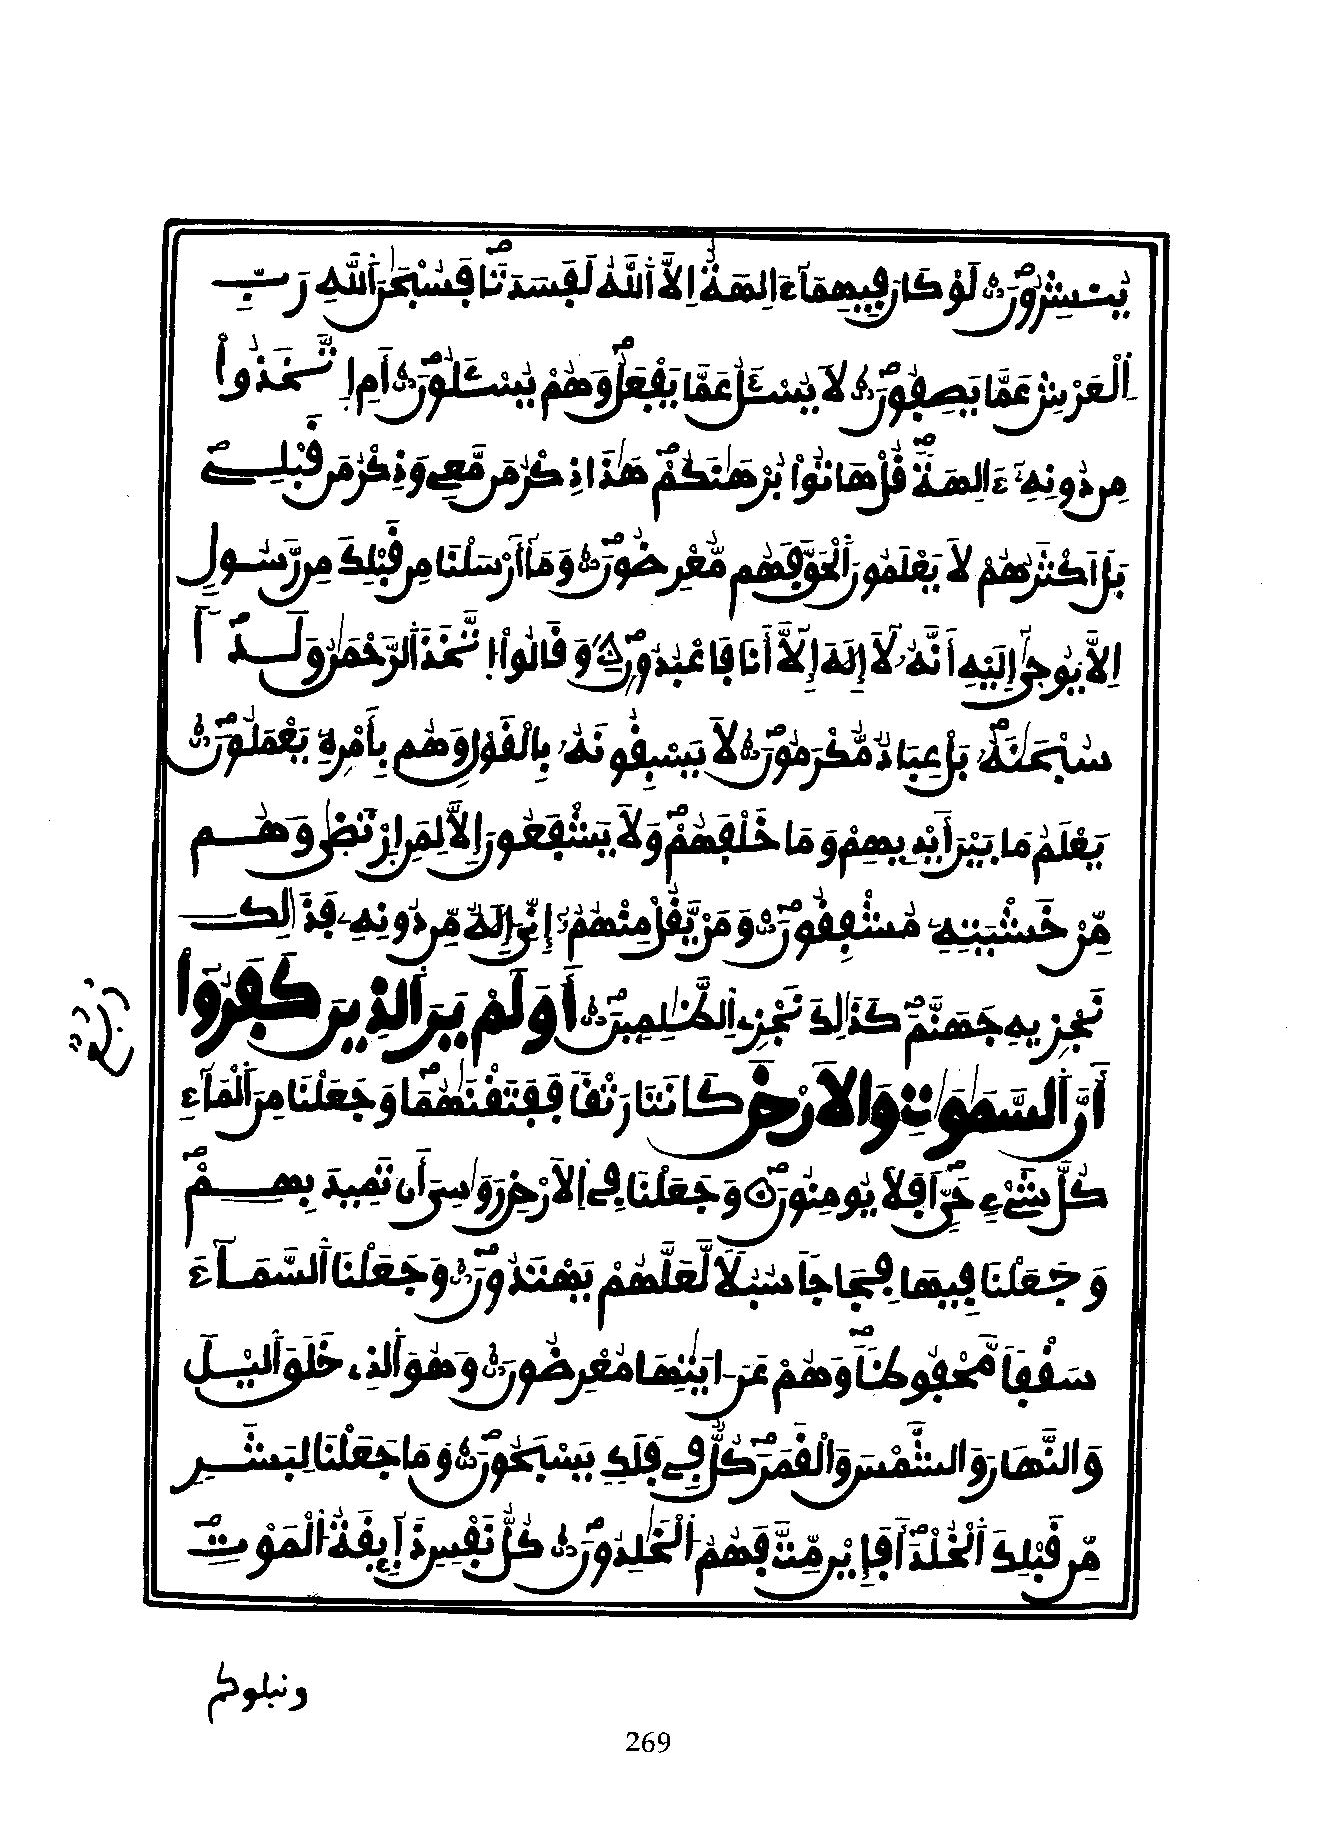 يُنشِرُونَ لَوْ كَانَ فِيهِمَآ ءَالِهَةٌ إِلَّا اَللَّهُ لَفَسَدَتَا فَسُبْحَٰنَ اَللَّهِ رَبِّ
اِلْعَرْشِ عَمَّا يَصِفُونَ لَا يُسْـَٔلُ عَمَّا يَفْعَلُ وَهُمْ يُسْـَٔلُونَ أَمِ اِتَّخَذُواْ
مِن دُونِهِۦٓ ءَالِهَةً قُلْ هَاتُواْ بُرْهَٰنَكُمْ هَٰذَا ذِكْرُ مَن مَّعِي وَذِكْرُ مَن قَبْلِے
بَلَ اَكْثَرُهُمْ لَا يَعْلَمُونَ اَلْحَقَّ فَهُم مُّعْرِضُونَ وَمَآ أَرْسَلْنَا مِن قَبْلِكَ مِن رَّسُولٍ
اِلَّا يُوحَىٰٓ إِلَيْهِ أَنَّهُۥ لَآ إِلَٰهَ إِلَّآ أَنَا فَاعْبُدُونِ وَقَالُواْ اُ تَّخَذَ اَلرَّحْمَٰنُ وَلَداً
سُبْحَٰنَهُۥ بَلْ عِبَادٌ مُّكْرَمُونَ لَا يَسْبِقُونَهُۥ بِالْقَوْلِ وَهُم بِأَمْرِهِۦ يَعْمَلُونَ
يَعْلَمُ مَا بَيْنَ أَيْدِيهِمْ وَمَا خَلْفَهُمْ وَلَا يَشْفَعُونَ إِلَّا لِمَنِ اِرْتَضَىٰ وَهُم
مِّنْ خَشْيَتِهِۦ مُشْفِقُونَ وَمَنْ يَّقُلْ مِنْهُمُۥٓ إِنِّيَ إِلَٰهٌ مِّن دُونِهِۦ فَذَٰلِكَ
نَجْزِيهِ جَهَنَّمَ كَذَٰلِكَ نَجْزِے اِلظَّٰلِمِينَ أَوَلَمْ يَرَ اَلذِينَ كَفَرُواْ
أَنَّ اَلسَّمَٰوَٰتِ وَالَارْضَ كَانَتَا رَتْقاً فَفَتَقْنَٰهُمَا وَجَعَلْنَا مِنَ اَلْمَآءِ
كُلَّ شَےْءٍ حَيٍّ اَفَلَا يُومِنُونَ وَجَعَلْنَا فِے اِلَارْضِ رَوَٰسِيَ أَن تَمِيدَ بِهِمْ
وَجَعَلْنَا فِيهَا فِجَاجاً سُبُلاً لَّعَلَّهُمْ يَهْتَدُونَ وَجَعَلْنَا اَلسَّمَآءَ
سَقْفاً مَّحْفُوظاً وَهُمْ عَنَ اٰيَٰتِهَا مُعْرِضُونَ وَهُوَ اَلذِے خَلَقَ اَليْلَ
وَالنَّهَارَ وَالشَّمْسَ وَالْقَمَرَ كُلٌّ فِے فَلَكٍ يَسْبَحُونَ وَمَا جَعَلْنَا لِبَشَرٍ
مِّن قَبْلِكَ اَلْخُلْدَ أَفَإِيْن مِّتَّ فَهُمُ اُلْخَٰلِدُونَ كُلُّ نَفْسٍ ذَآئِقَةُ اُلْمَوْتِ
ونبلوكم
269